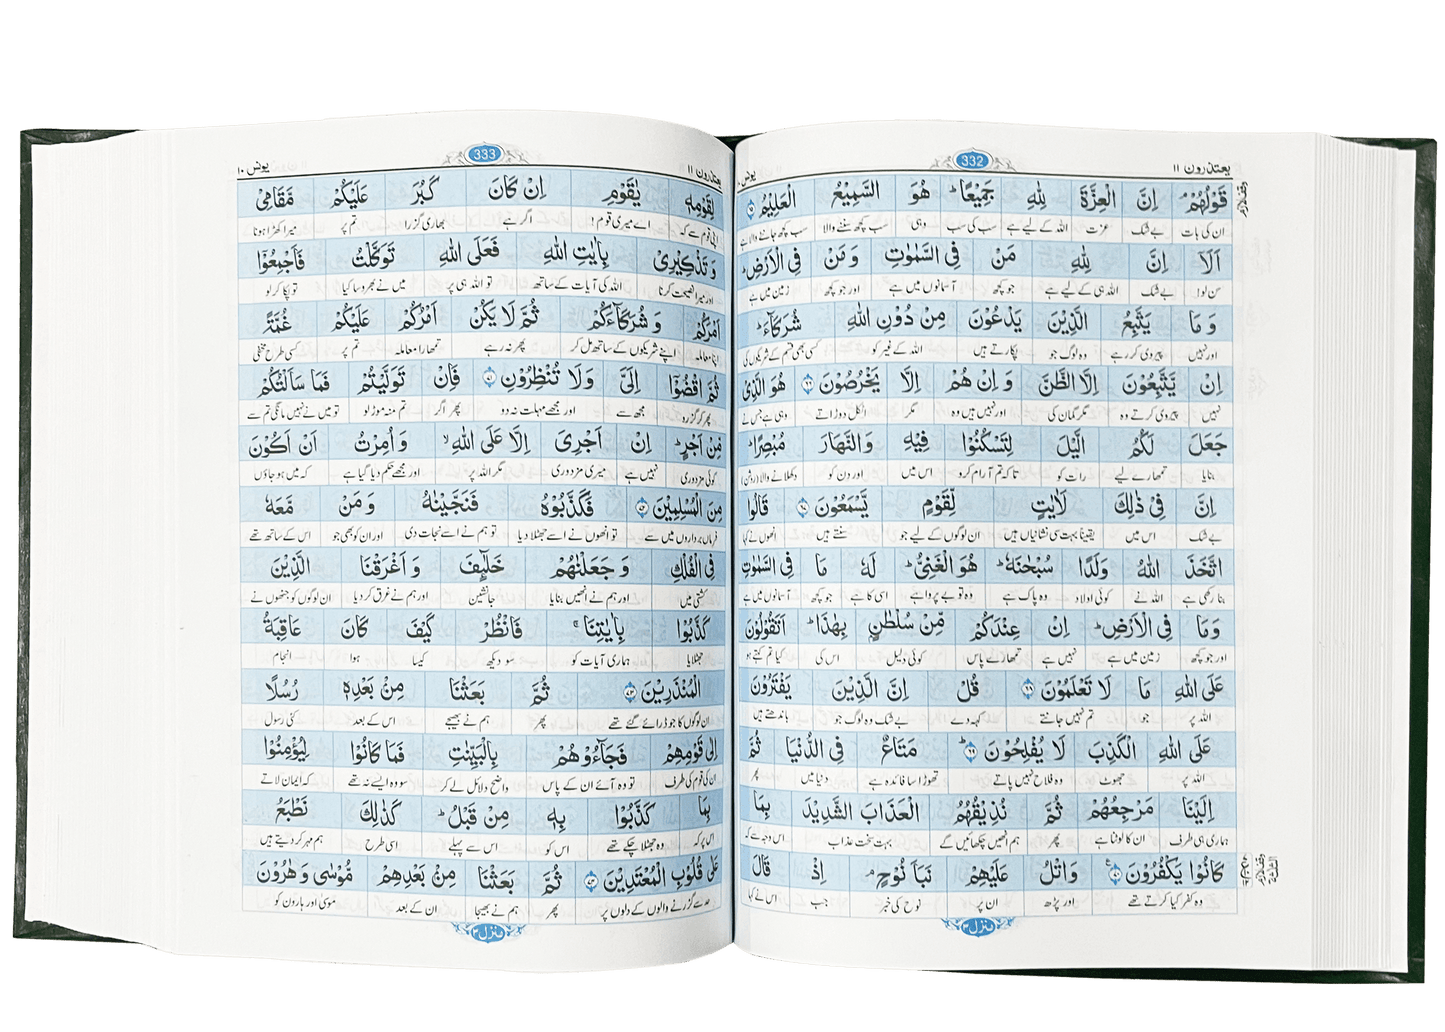 یعتذرون ۱۱ 332 یونس ۱۰
قَوْلُهُمْ ۘ اِنَّ الْعِزَّةَ لِلّٰهِ جَمِيْعًا ؕ هُوَ السَّمِيْعُ الْعَلِيْمُ ۶۵
ان کی بات بےشک عزت اللہ کے لیے ہے سب کی سب وہی سب کچھ سننے والا سب کچھ جاننے والا ہے
اَلَاۤ اِنَّ لِلّٰهِ مَنْ فِى السَّمٰوٰتِ وَ مَنْ فِى الْاَرْضِ ؕ
سن لو! بےشک اللہ ہی کے لیے ہے جو کچھ آسمانوں میں ہے اور جو کچھ زمین میں ہے
وَ مَا يَتَّبِعُ الَّذِيْنَ يَدْعُوْنَ مِنْ دُوْنِ اللّٰهِ شُرَكَآءَ ؕ
اور نہیں پیروی کر رہے وہ لوگ جو پکارتے ہیں اللہ کے غیر کو کسی بھی قسم کے شریکوں کی
اِنْ يَّتَّبِعُوْنَ اِلَّا الظَّنَّ وَ اِنْ هُمْ اِلَّا يَخْرُصُوْنَ ۶۶ هُوَ الَّذِىْ
نہیں پیروی کرتے وہ مگر گمان کی اور نہیں ہیں وہ مگر اٹکل دوڑاتے وہی ہے جس نے
جَعَلَ لَكُمُ الَّيْلَ لِتَسْكُنُوْا فِيْهِ وَالنَّهَارَ مُبْصِرًا ؕ
بنایا تمھارے لیے رات کو تاکہ تم آرام کرو اس میں اور دن کو دکھلانے والا (روشن)
اِنَّ فِىْ ذٰلِكَ لَاٰيٰتٍ لِّقَوْمٍ يَّسْمَعُوْنَ ۶۷ قَالُوا
بےشک اس میں یقیناً بہت سی نشانیاں ہیں ان لوگوں کے لیے جو سنتے ہیں انھوں نے کہا
اتَّخَذَ اللّٰهُ وَلَدًا سُبْحٰنَهٗ ؕ هُوَ الْغَنِىُّ ؕ لَهٗ مَا فِى السَّمٰوٰتِ
بنا رکھی ہے اللہ نے کوئی اولاد وہ پاک ہے وہ تو بے پرواہے اسی کا ہے جو کچھ آسمانوں میں ہے
وَمَا فِى الْاَرْضِ ؕ اِنْ عِنْدَكُمْ مِّنْ سُلْطٰنٍۭ بِهٰذَا ؕ اَتَقُوْلُوْنَ
اور جو کچھ زمین میں ہے نہیں ہے تمھارے پاس کوئی دلیل اس کی کیا تم کہتے ہو
عَلَى اللّٰهِ مَا لَا تَعْلَمُوْنَ ۶۸ قُلْ اِنَّ الَّذِيْنَ يَفْتَرُوْنَ
اللہ پر جو تم نہیں جانتے کہہ دے بےشک وہ لوگ جو باندھتے ہیں
عَلَى اللّٰهِ الْكَذِبَ لَا يُفْلِحُوْنَ ؕ ۶۹ مَتَاعٌ فِى الدُّنْيَا ثُمَّ
اللہ پر جھوٹ وہ فلاح نہیں پاتے تھوڑا سا فائدہ ہے دنیا میں پھر
اِلَيْنَا مَرْجِعُهُمْ ثُمَّ نُذِيْقُهُمُ الْعَذَابَ الشَّدِيْدَ بِمَا
ہماری ہی طرف ان کا لوٹنا ہے پھر ہم انھیں چکھائیں گے بہت سخت عذاب اس وجہ سے کہ
كَانُوْا يَكْفُرُوْنَ ۷۰ وَاتْلُ عَلَيْهِمْ نَبَاَ نُوْحٍ ۘ اِذْ قَالَ
وہ کفر کیا کرتے تھے اور پڑھ ان پر نوح کی خبر جب اس نے کہا
منزل ۳
یعتذرون ۱۱ 333 یونس ۱۰
لِقَوْمِهٖ يٰقَوْمِ اِنْ كَانَ كَبُرَ عَلَيْكُمْ مَّقَامِىْ
اپنی قوم سے کہ اے میری قوم! اگر ہے بھاری گزرا تم پر میرا کھڑا ہونا
وَ تَذْكِيْرِىْ بِاٰيٰتِ اللّٰهِ فَعَلَى اللّٰهِ تَوَكَّلْتُ فَاَجْمِعُوْۤا
اور میرا نصیحت کرنا اللہ کی آیات کے ساتھ تو اللہ ہی پر میں نے بھروسا کیا تو پکا کر لو
اَمْرَكُمْ وَ شُرَكَآءَكُمْ ثُمَّ لَا يَكُنْ اَمْرُكُمْ عَلَيْكُمْ غُمَّةً
اپنا معاملہ اپنے شریکوں کے ساتھ مل کر پھر نہ رہے تمھارا معاملہ تم پر کسی طرح مخفی
ثُمَّ اقْضُوْۤا اِلَىَّ وَلَا تُنْظِرُوْنِ ۷۱ فَاِنْ تَوَلَّيْتُمْ فَمَا سَاَلْتُكُمْ
پھر کر گزرو مجھ سے اور مجھے مہلت نہ دو پھر اگر تم منہ موڑ لو تو میں نے نہیں مانگی تم سے
مِّنْ اَجْرٍ ؕ اِنْ اَجْرِىَ اِلَّا عَلَى اللّٰهِ ۙ وَ اُمِرْتُ اَنْ اَكُوْنَ
کوئی مزدوری نہیں ہے میری مزدوری مگر اللہ پر اور مجھے حکم دیا گیا ہے کہ میں ہو جاؤں
مِنَ الْمُسْلِمِيْنَ ۷۲ فَكَذَّبُوْهُ فَنَجَّيْنٰهُ وَ مَنْ مَّعَهٗ
فرماں برداروں میں سے تو انھوں نے اسے جھٹلا دیا تو ہم نے اسے نجات دی اور ان کو بھی جو اس کے ساتھ تھے
فِى الْفُلْكِ وَ جَعَلْنٰهُمْ خَلٰٓئِفَ وَ اَغْرَقْنَا الَّذِيْنَ
کشتی میں اور ہم نے انھیں بنایا جانشین اور ہم نے غرق کر دیا ان لوگوں کو جنھوں نے
كَذَّبُوْا بِاٰيٰتِنَا ۚ فَانْظُرْ كَيْفَ كَانَ عَاقِبَةُ
جھٹلایا ہماری آیات کو سو دیکھ کیسا ہوا انجام
الْمُنْذَرِيْنَ ۷۳ ثُمَّ بَعَثْنَا مِنْۢ بَعْدِهٖ رُسُلًا
ان لوگوں کا جو ڈرائے گئے تھے پھر ہم نے بھیجے اس کے بعد کئی رسول
اِلٰى قَوْمِهِمْ فَجَآءُوْهُمْ بِالْبَيِّنٰتِ فَمَا كَانُوْا لِيُؤْمِنُوْا
ان کی قوم کی طرف تو وہ آئے ان کے پاس واضح دلائل لے کر سو وہ ایسے نہ تھے کہ ایمان لاتے
بِمَا كَذَّبُوْا بِهٖ مِنْ قَبْلُ ؕ كَذٰلِكَ نَطْبَعُ
اس پر کہ وہ جھٹلا چکے تھے اس کو اس سے پہلے اسی طرح ہم مہر کر دیتے ہیں
عَلٰى قُلُوْبِ الْمُعْتَدِيْنَ ۷۴ ثُمَّ بَعَثْنَا مِنْۢ بَعْدِهِمْ مُّوْسٰى وَ هٰرُوْنَ
حد سے گزرنے والوں کے دلوں پر پھر ہم نے بھیجا ان کے بعد موسیٰ اور ہارون کو
منزل ۳